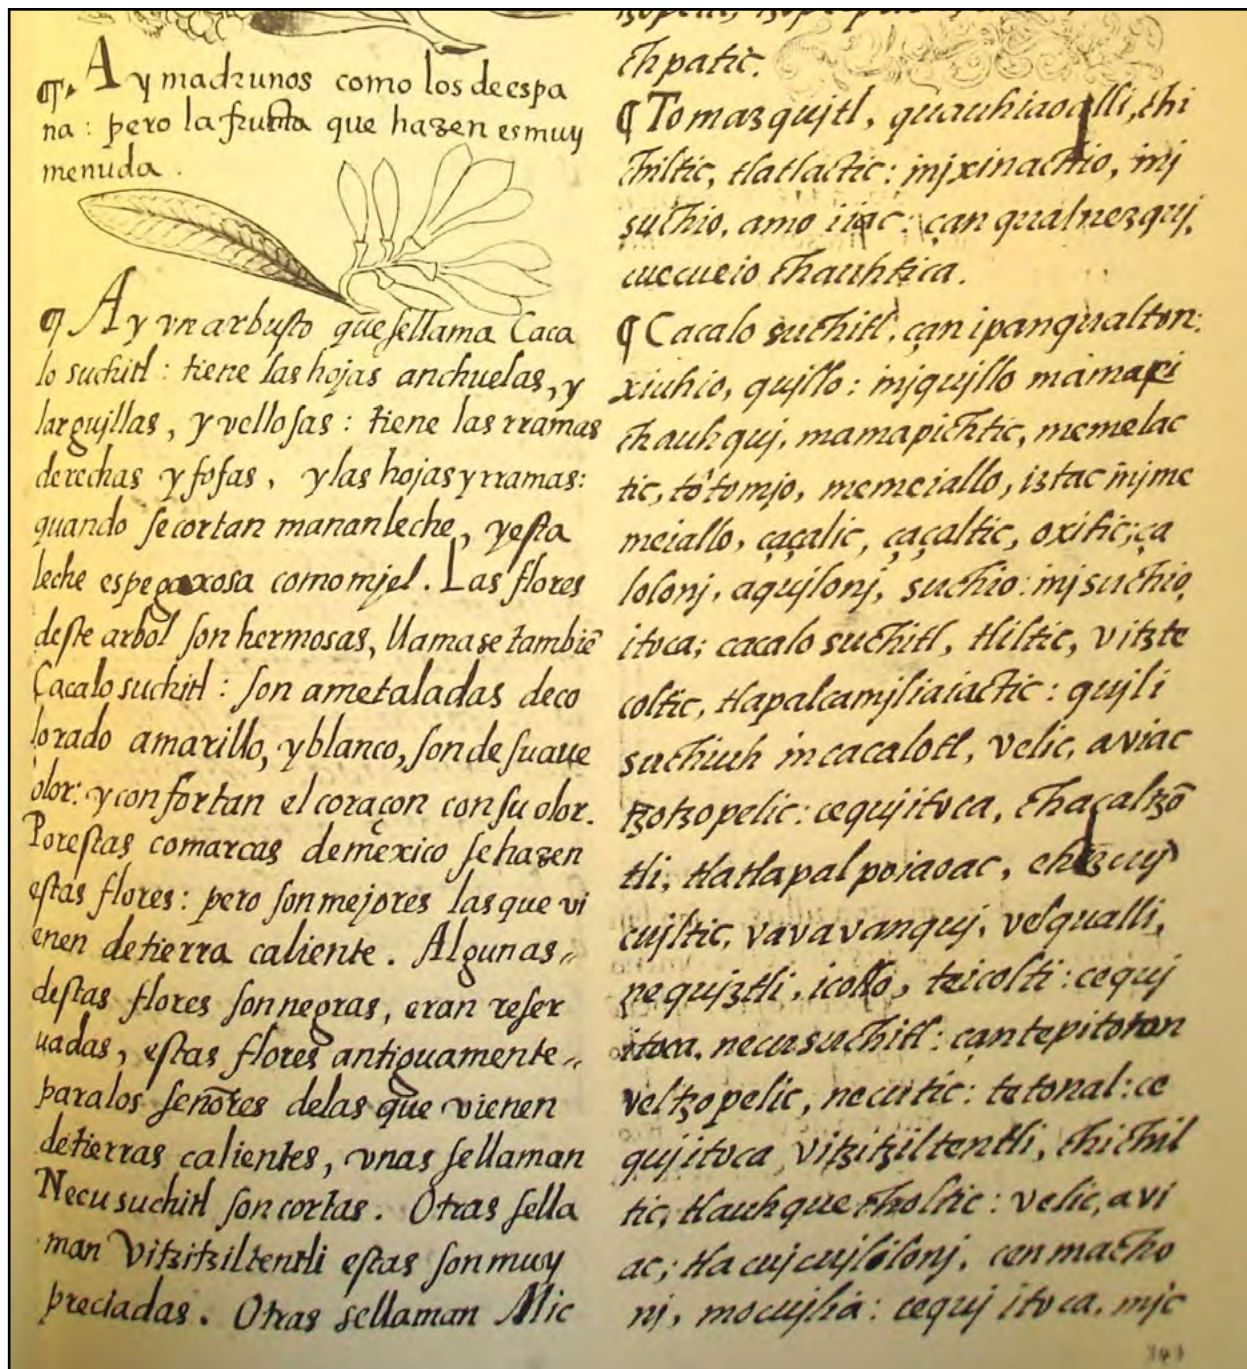 ¶. Ay madrunos como los deespa
na: pero la fruta que hazen es muy
menuda.
¶ Ay vn arbusto que sellama Caca
lo suchitl: tiene las hojas anchuelas, y
larguillas, y vellosas: tiene las rramas
derechas y fofas, y las hojas y rramas:
quando se cortan manan leche, yesta
leche es pegaxosa como mjel. Las flores
deste arbol son hermosas, llamase tambiē
Cacalo suchitl: son ametaladas deco
lorado amarillo, y blanco, son de suaue
olor: y confortan el coraçon con su olor.
Porestas comarcas demexico sehazen
estas flores: pero son mejores las que vi
enen de tierra caliente. Algunas
destas flores son negras, eran reser
uadas, estas flores antiguamente
paralos señores delas que vienen
detierras calientes, vnas sellaman
Necu suchitl son cortas. Otras sella
man Vitzitziltentli estas son muy
preciadas. Otras sellaman Mic
chpatic.
¶ Tomazqujtl, quauhiaoalli, chi
chiltic, tlatlactic: injxinachio, inj
suchio, amo iiac: çan qualnezquj,
cuecueio chauhtica.
¶ Cacalo suchitl, çan ipanqualton:
xiuhio, qujllo: injqujllo mamapi
chauhquj, mamapichtic, memelac
tic, tòtomjo, memeiallo, iztac injme
meiallo, çaçalic, çaçaltic, oxitic; ça
lolonj, aqujlonj, suchio: inj suchio,
itoca; cacalo suchitl, tliltic, vitzte
coltic, tlapalcamjliaiactic: qujl i
suchiuh in cacalotl, velic, aviac
tzotzopelic: cequj itoca, chacaltzō
tli, tlatlapalpoiaoac, ehtzcuj
cujltic, vavavanquj, velqualli,
nequjztli, icollo, teicolti: cequj
itoca, necusuchitl: çan tepitoton
veltzopelic, necutic: tetonal: ce
quj itoca vitzitziltentli, chichil
tic, tlauhquecholtic: velic, avi
ac; tlacujcujlolonj, cenmacho
nj, mocujlia: cequj itoca, mjc